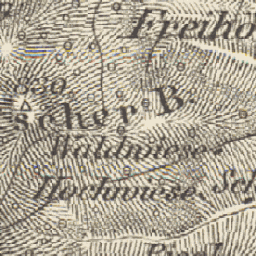 Freiho
830
scher B.
Waldwiese
Hochwiese.
Sch